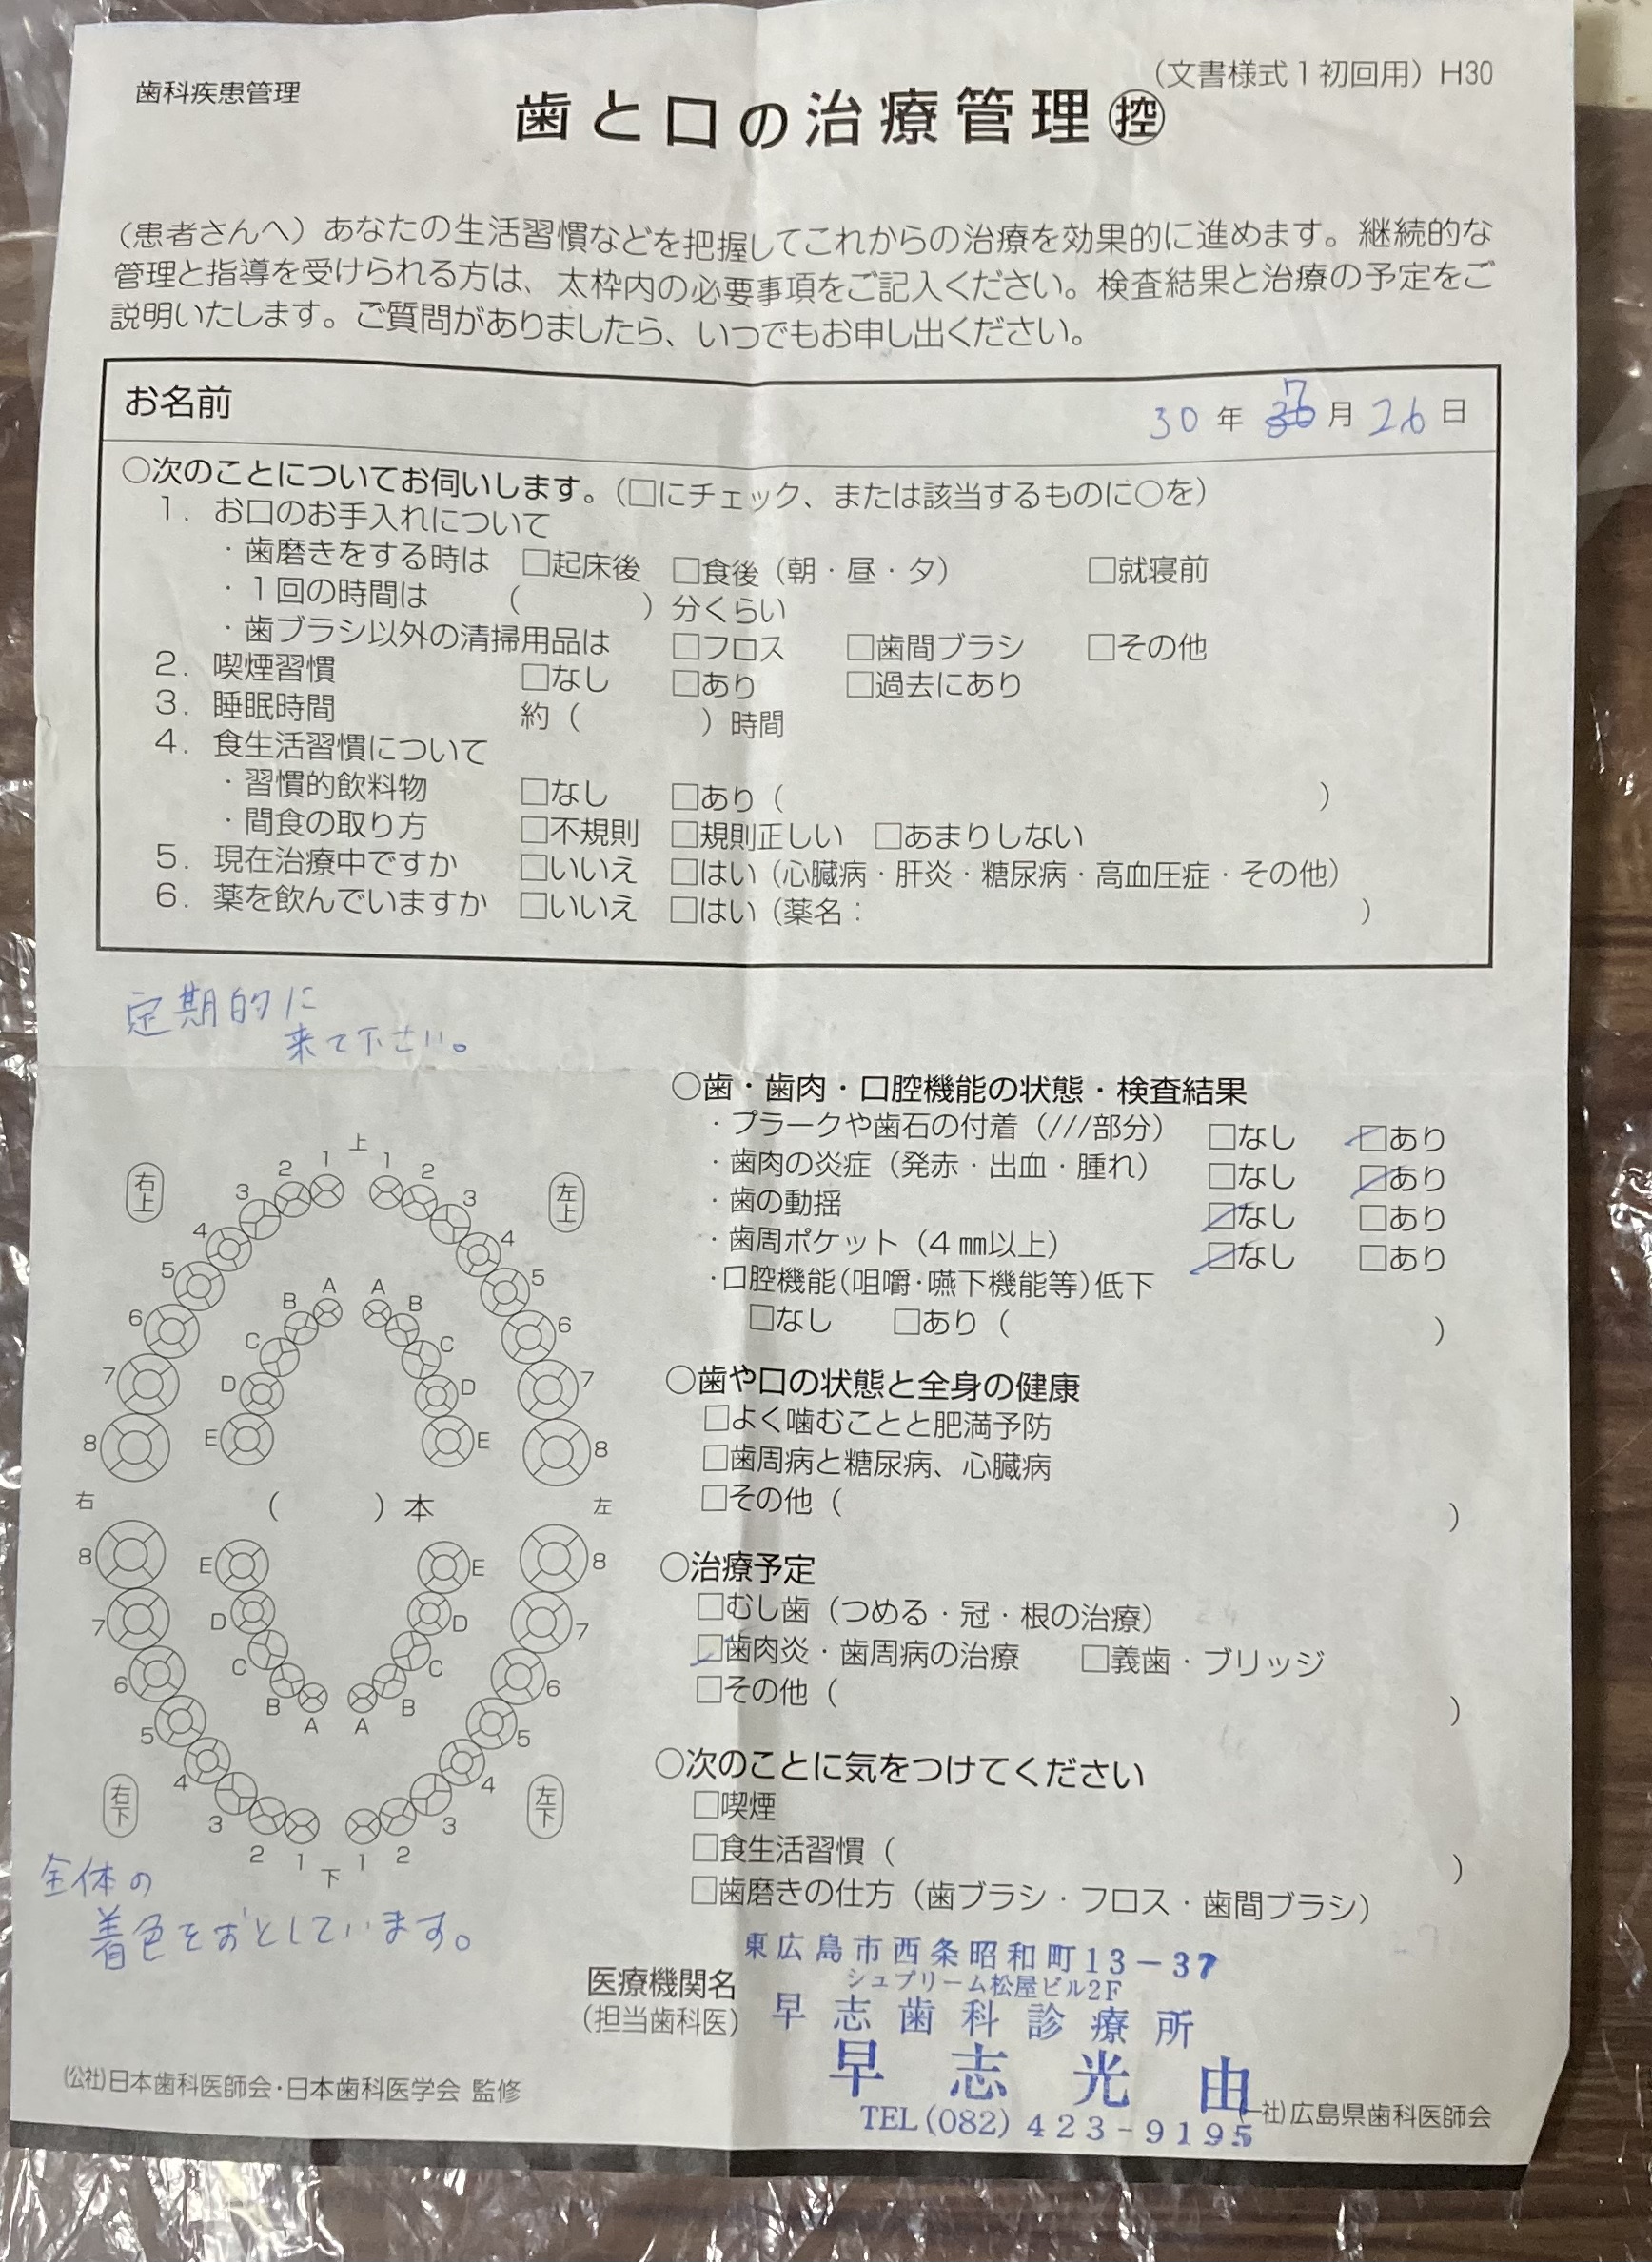 歯科疾患管理
（文書様式１初回用）H30
歯と口の治療管理㊢
（患者さんへ）あなたの生活習慣などを把握してこれからの治療を効果的に進めます。継続的な
管理と指導を受けられる方は、太枠内の必要事項をご記入ください。検査結果と治療の予定をご
説明いたします。ご質問がありましたら、いつでもお申し出ください。
お名前 30 年 7 月 26 日
○次のことについてお伺いします。（□にチェック、または該当するものに○を）
1．お口のお手入れについて
・歯磨きをする時は □起床後 □食後（朝・昼・夕） □就寝前
・１回の時間は （ ）分くらい
・歯ブラシ以外の清掃用品は □フロス □歯間ブラシ □その他
2．喫煙習慣 □なし □あり □過去にあり
3．睡眠時間 約（ ）時間
4．食生活習慣について
・習慣的飲料物 □なし □あり（ ）
・間食の取り方 □不規則 □規則正しい □あまりしない
5．現在治療中ですか □いいえ □はい（心臓病・肝炎・糖尿病・高血圧症・その他）
6．薬を飲んでいますか □いいえ □はい（薬名： ）
定期的に
来て下さい。
上
右上 2 1 1 2 左上
3 3
4 4
5 5
6 6
7 7
8 8
A A
B B
C C
D D
E E
右 （ ）本 左
8 E E 8
7 D D 7
6 C C 6
B B
5 A A 5
4 4
右下 3 3 左下
2 1 下 1 2
全体の
着色をおとしています。
○歯・歯肉・口腔機能の状態・検査結果
・プラークや歯石の付着（///部分） □なし ☑あり
・歯肉の炎症（発赤・出血・腫れ） □なし ☑あり
・歯の動揺 ☑なし □あり
・歯周ポケット（４㎜以上） ☑なし □あり
・口腔機能（咀嚼・嚥下機能等）低下
□なし □あり（ ）
○歯や口の状態と全身の健康
□よく噛むことと肥満予防
□歯周病と糖尿病、心臓病
□その他（ ）
○治療予定
□むし歯（つめる・冠・根の治療）
☑歯肉炎・歯周病の治療 □義歯・ブリッジ
□その他（ ）
○次のことに気をつけてください
□喫煙
□食生活習慣（ ）
□歯磨きの仕方（歯ブラシ・フロス・歯間ブラシ）
東広島市西条昭和町13－37
シュプリーム松屋ビル2F
医療機関名
（担当歯科医）
早志歯科診療所
早志光由
TEL(082)423-9195
(公社)日本歯科医師会・日本歯科医学会 監修
(一社)広島県歯科医師会